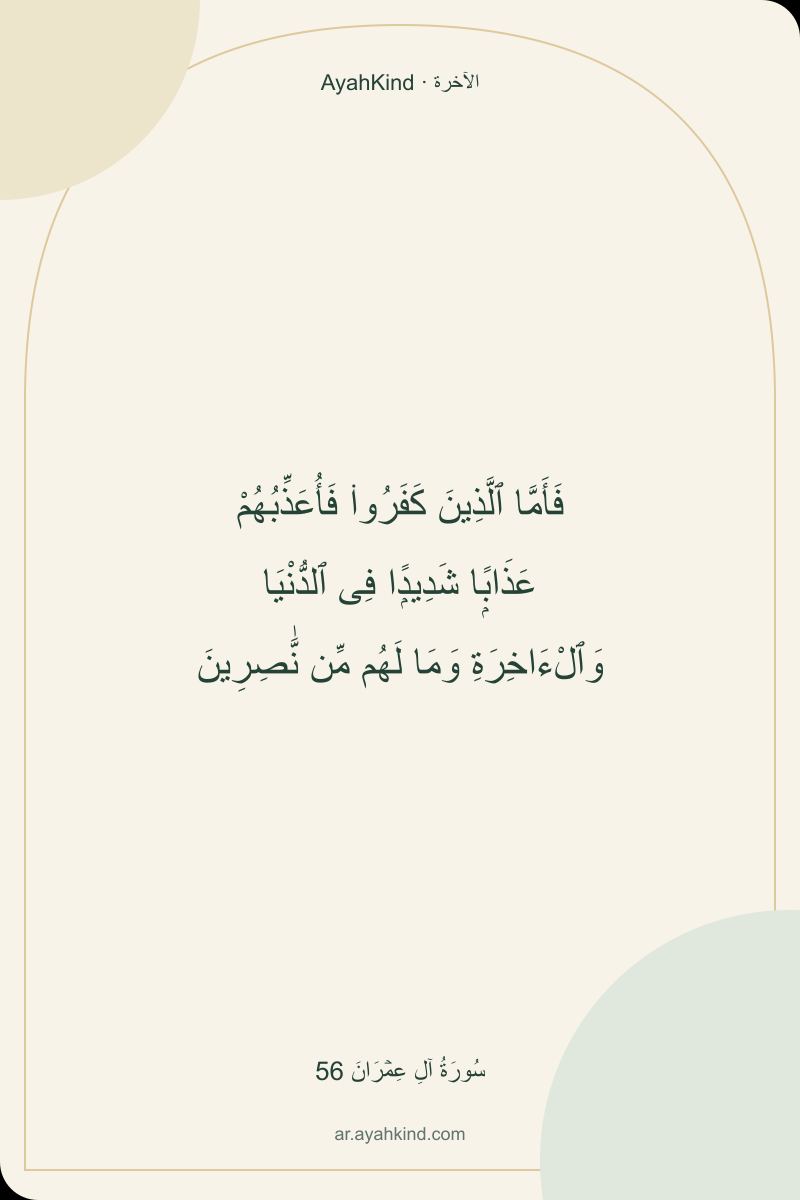 AyahKind · الآخرة
فَأَمَّا ٱلَّذِينَ كَفَرُوا۟ فَأُعَذِّبُهُمْ
عَذَابًۭا شَدِيدًۭا فِى ٱلدُّنْيَا
وَٱلْءَاخِرَةِ وَمَا لَهُم مِّن نَّـٰصِرِينَ
سُورَةُ آلِ عِمۡرَانَ 56
ar.ayahkind.com